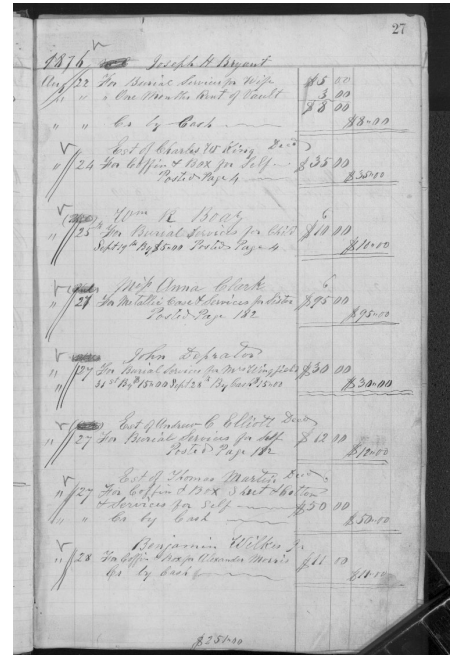 27
1876 Joseph H. Bryant
Aug 22 For Burial Services for Wife $5 00
" " " One Months Rent of Vault 3 00
$8 00
" " Cr by Cash $8-00
Est of Charles W King Decd
" 24 For Coffin & Box for Self $35 00
Posted Page 4 $35-00
Wm R. Boaz
25 For Burial Services for Child $10 00
Sept 19th By $5-00 Posted Page 4 $10-00
Miss Anna Clark
" 27 For Metallic Case & Services for Sister $95 00
Posted Page 182 $95-00
John
" 27 For Burial Services for Mrs Wingfield $30 00
" 31st By $15-00 Sept 28th By Cash $15-00 $30-00
Est of Andrew C. Elliott Decd
" 27 For Burial Services for Self $12 00
Posted Page 182 $12-00
Est of Thomas Martin Decd
" 27 For Coffin & Box Sheet & Cotton
& Services for Self $50 00
" " Cr by Cash $50-00
Benjamin Wilkes
" 28 For Coffin & Box for Alexander Morris $11 00
Cr by Cash $11-00
$251-00